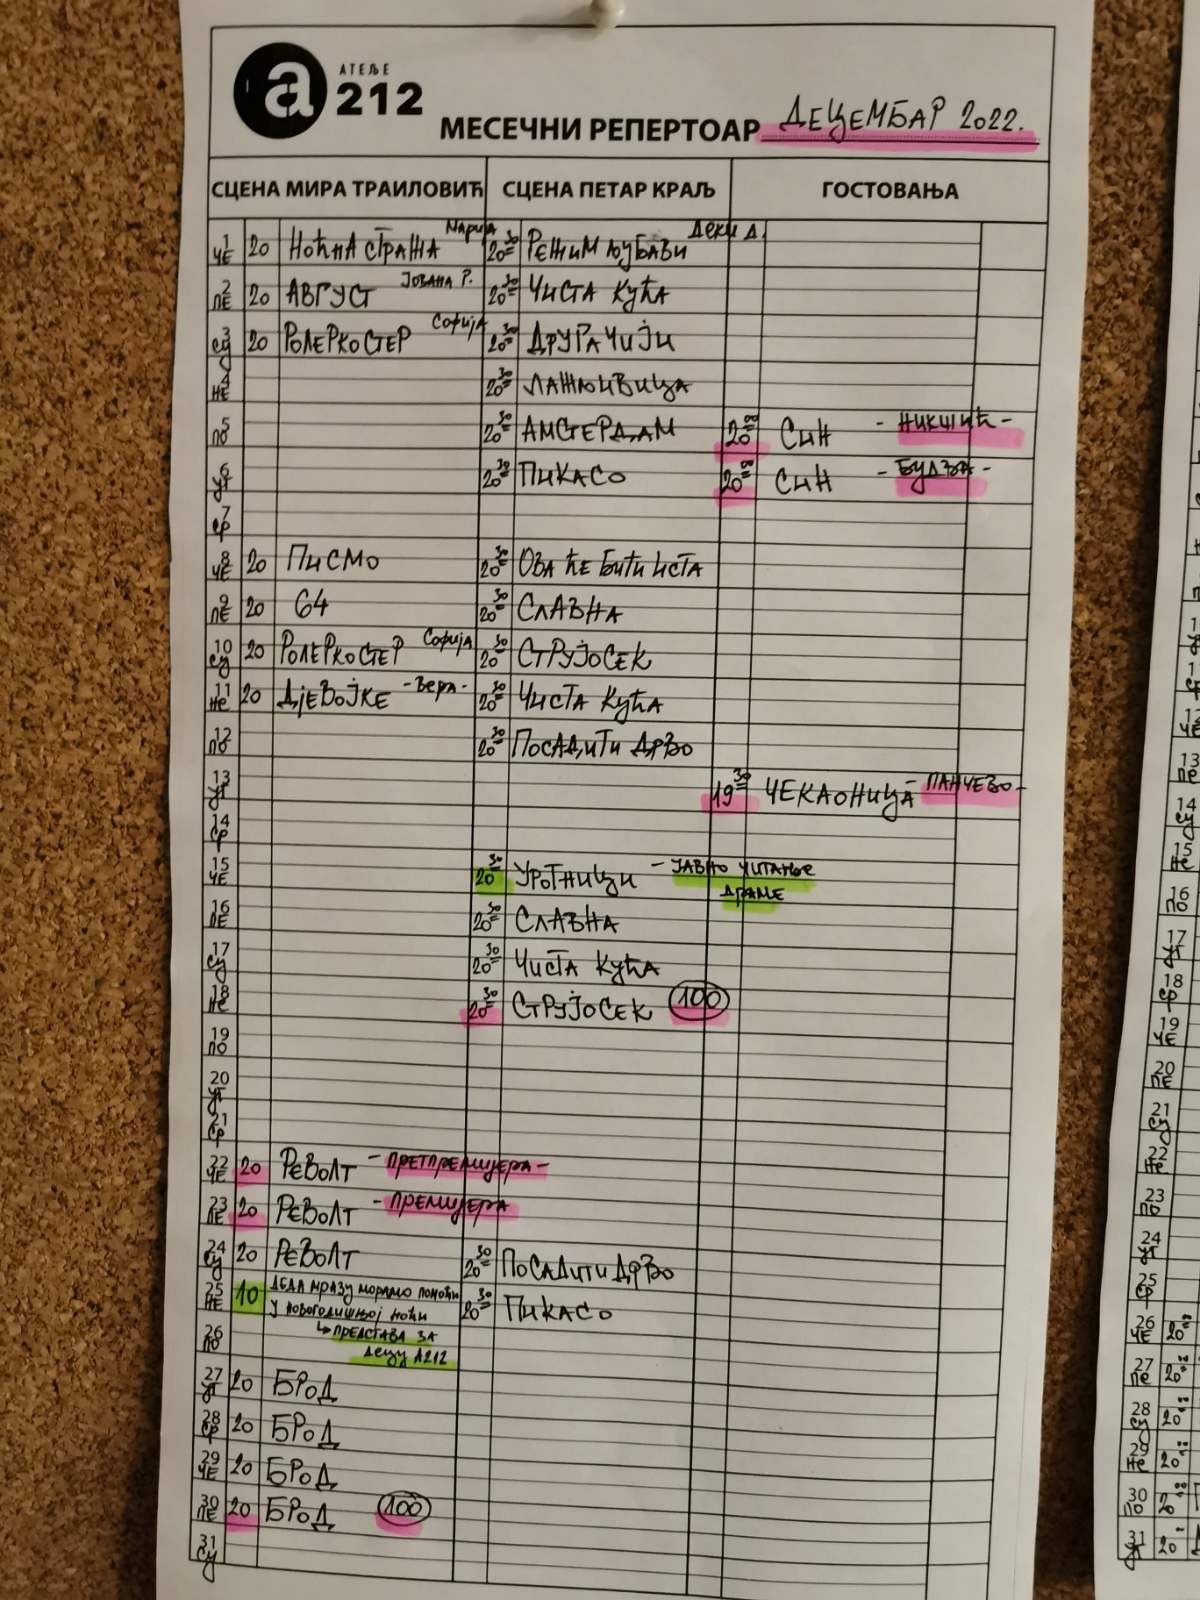 a АТЕЉЕ
212
МЕСЕЧНИ РЕПЕРТОАР ДЕЦЕМБАР 2022.
СЦЕНА МИРА ТРАИЛОВИЋ СЦЕНА ПЕТАР КРАЉ ГОСТОВАЊА
1 ЧЕ 20 НОЋНА СТРАЖА Марија 20 30 РЕЖИМ ЉУБАВИ Деки Д.
2 ПЕ 20 АВГУСТ ЈОВАНА Р. 20 30 ЧИСТА КУЋА
3 СУ 20 РОЛЕРКОСТЕР Софија 20 30 ДРУГАЧИЈИ
4 НЕ 20 30 ЛАЖЉИВИЦА
5 ПО 20 30 АМСТЕРДАМ 20 00 СИН - НИКШИЋ -
6 УТ 20 30 ПИКАСО 20 00 СИН - БУДВА -
7 СР
8 ЧЕ 20 ПИСМО 20 30 ОВА ЋЕ БИТИ ИСТА
9 ПЕ 20 64 20 30 СЛАВНА
10 СУ 20 РОЛЕРКОСТЕР Софија 20 30 СТРУЈОСЕК
11 НЕ 20 ДЈЕВОЈКЕ - Вера - 20 30 ЧИСТА КУЋА
12 ПО 20 30 ПОСАДИТИ ДРВО
13 УТ 19 30 ЧЕКАОНИЦА - ПАНЧЕВО -
14 СР
15 ЧЕ 20 30 УРОТНИЦИ - ЈАВНО ЧИТАЊЕ
ДРАМЕ
16 ПЕ 20 30 СЛАВНА
17 СУ 20 30 ЧИСТА КУЋА
18 НЕ 20 30 СТРУЈОСЕК 100
19 ПО
20 УТ
21 СР
22 ЧЕ 20 РЕВОЛТ - ПРЕТПРЕМИЈЕРА -
23 ПЕ 20 РЕВОЛТ - ПРЕМИЈЕРА
24 СУ 20 РЕВОЛТ 20 30 ПОСАДИТИ ДРВО
25 НЕ 10 ДЕДА МРАЗУ МОРАМО ПОМОЋИ 20 30 ПИКАСО
У НОВОГОДИШЊОЈ НОЋИ
26 ПО ↳ ПРЕДСТАВА ЗА
ДЕЦУ А212
27 УТ 20 БРОД
28 СР 20 БРОД
29 ЧЕ 20 БРОД
30 ПЕ 20 БРОД 100
31 СУ
13 ПЕ
14 СУ
15 НЕ
16 ПО
17 УТ
18 СР
19 ЧЕ
20 ПЕ
21 СУ
22 НЕ
23 ПО
24 УТ
25 СР
26 ЧЕ 20
27 ПЕ 20
28 СУ 20
29 НЕ 20
30 ПО 20
31 УТ 20